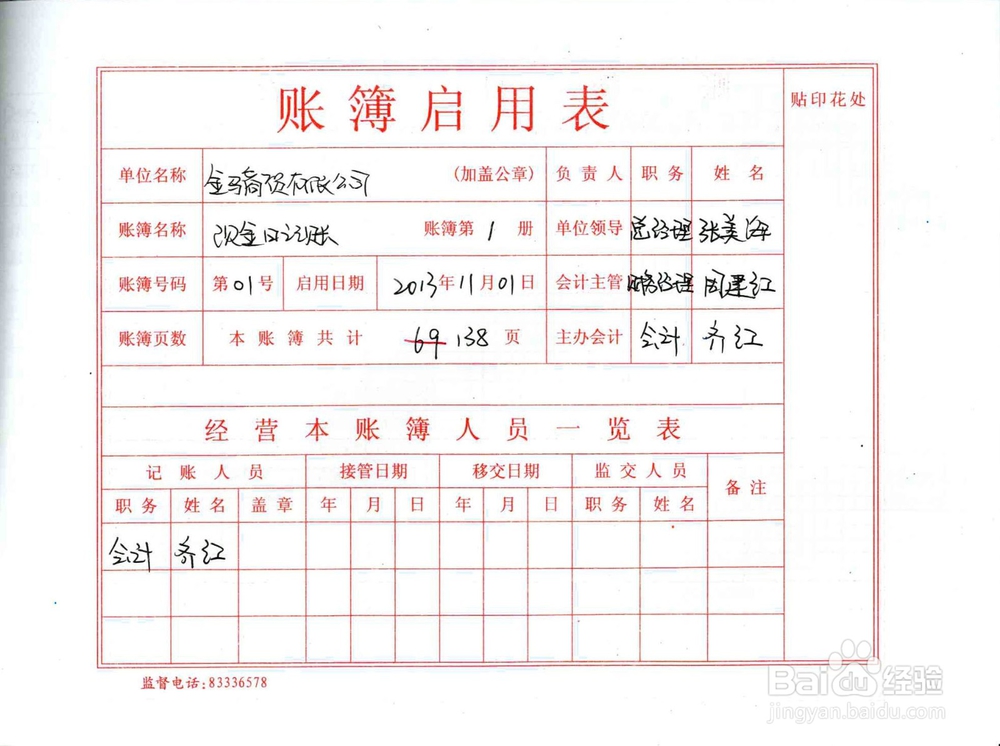 账簿启用表
贴印花处
单位名称 金马商贸有限公司 (加盖公章) 负责人 职务 姓名
账簿名称 现金日记账 账簿第 1 册 单位领导 总经理 张美海
账簿号码 第01号 启用日期 2013年11月01日 会计主管 经理 周建红
账簿页数 本账簿共计 69 138 页 主办会计 会计 齐红
经营本账簿人员一览表
记账人员 接管日期 移交日期 监交人员 备注
职务 姓名 盖章 年 月 日 年 月 日 职务 姓名
会计 齐红
监督电话:83336578
Baidu 经验
jingyan.baidu.com